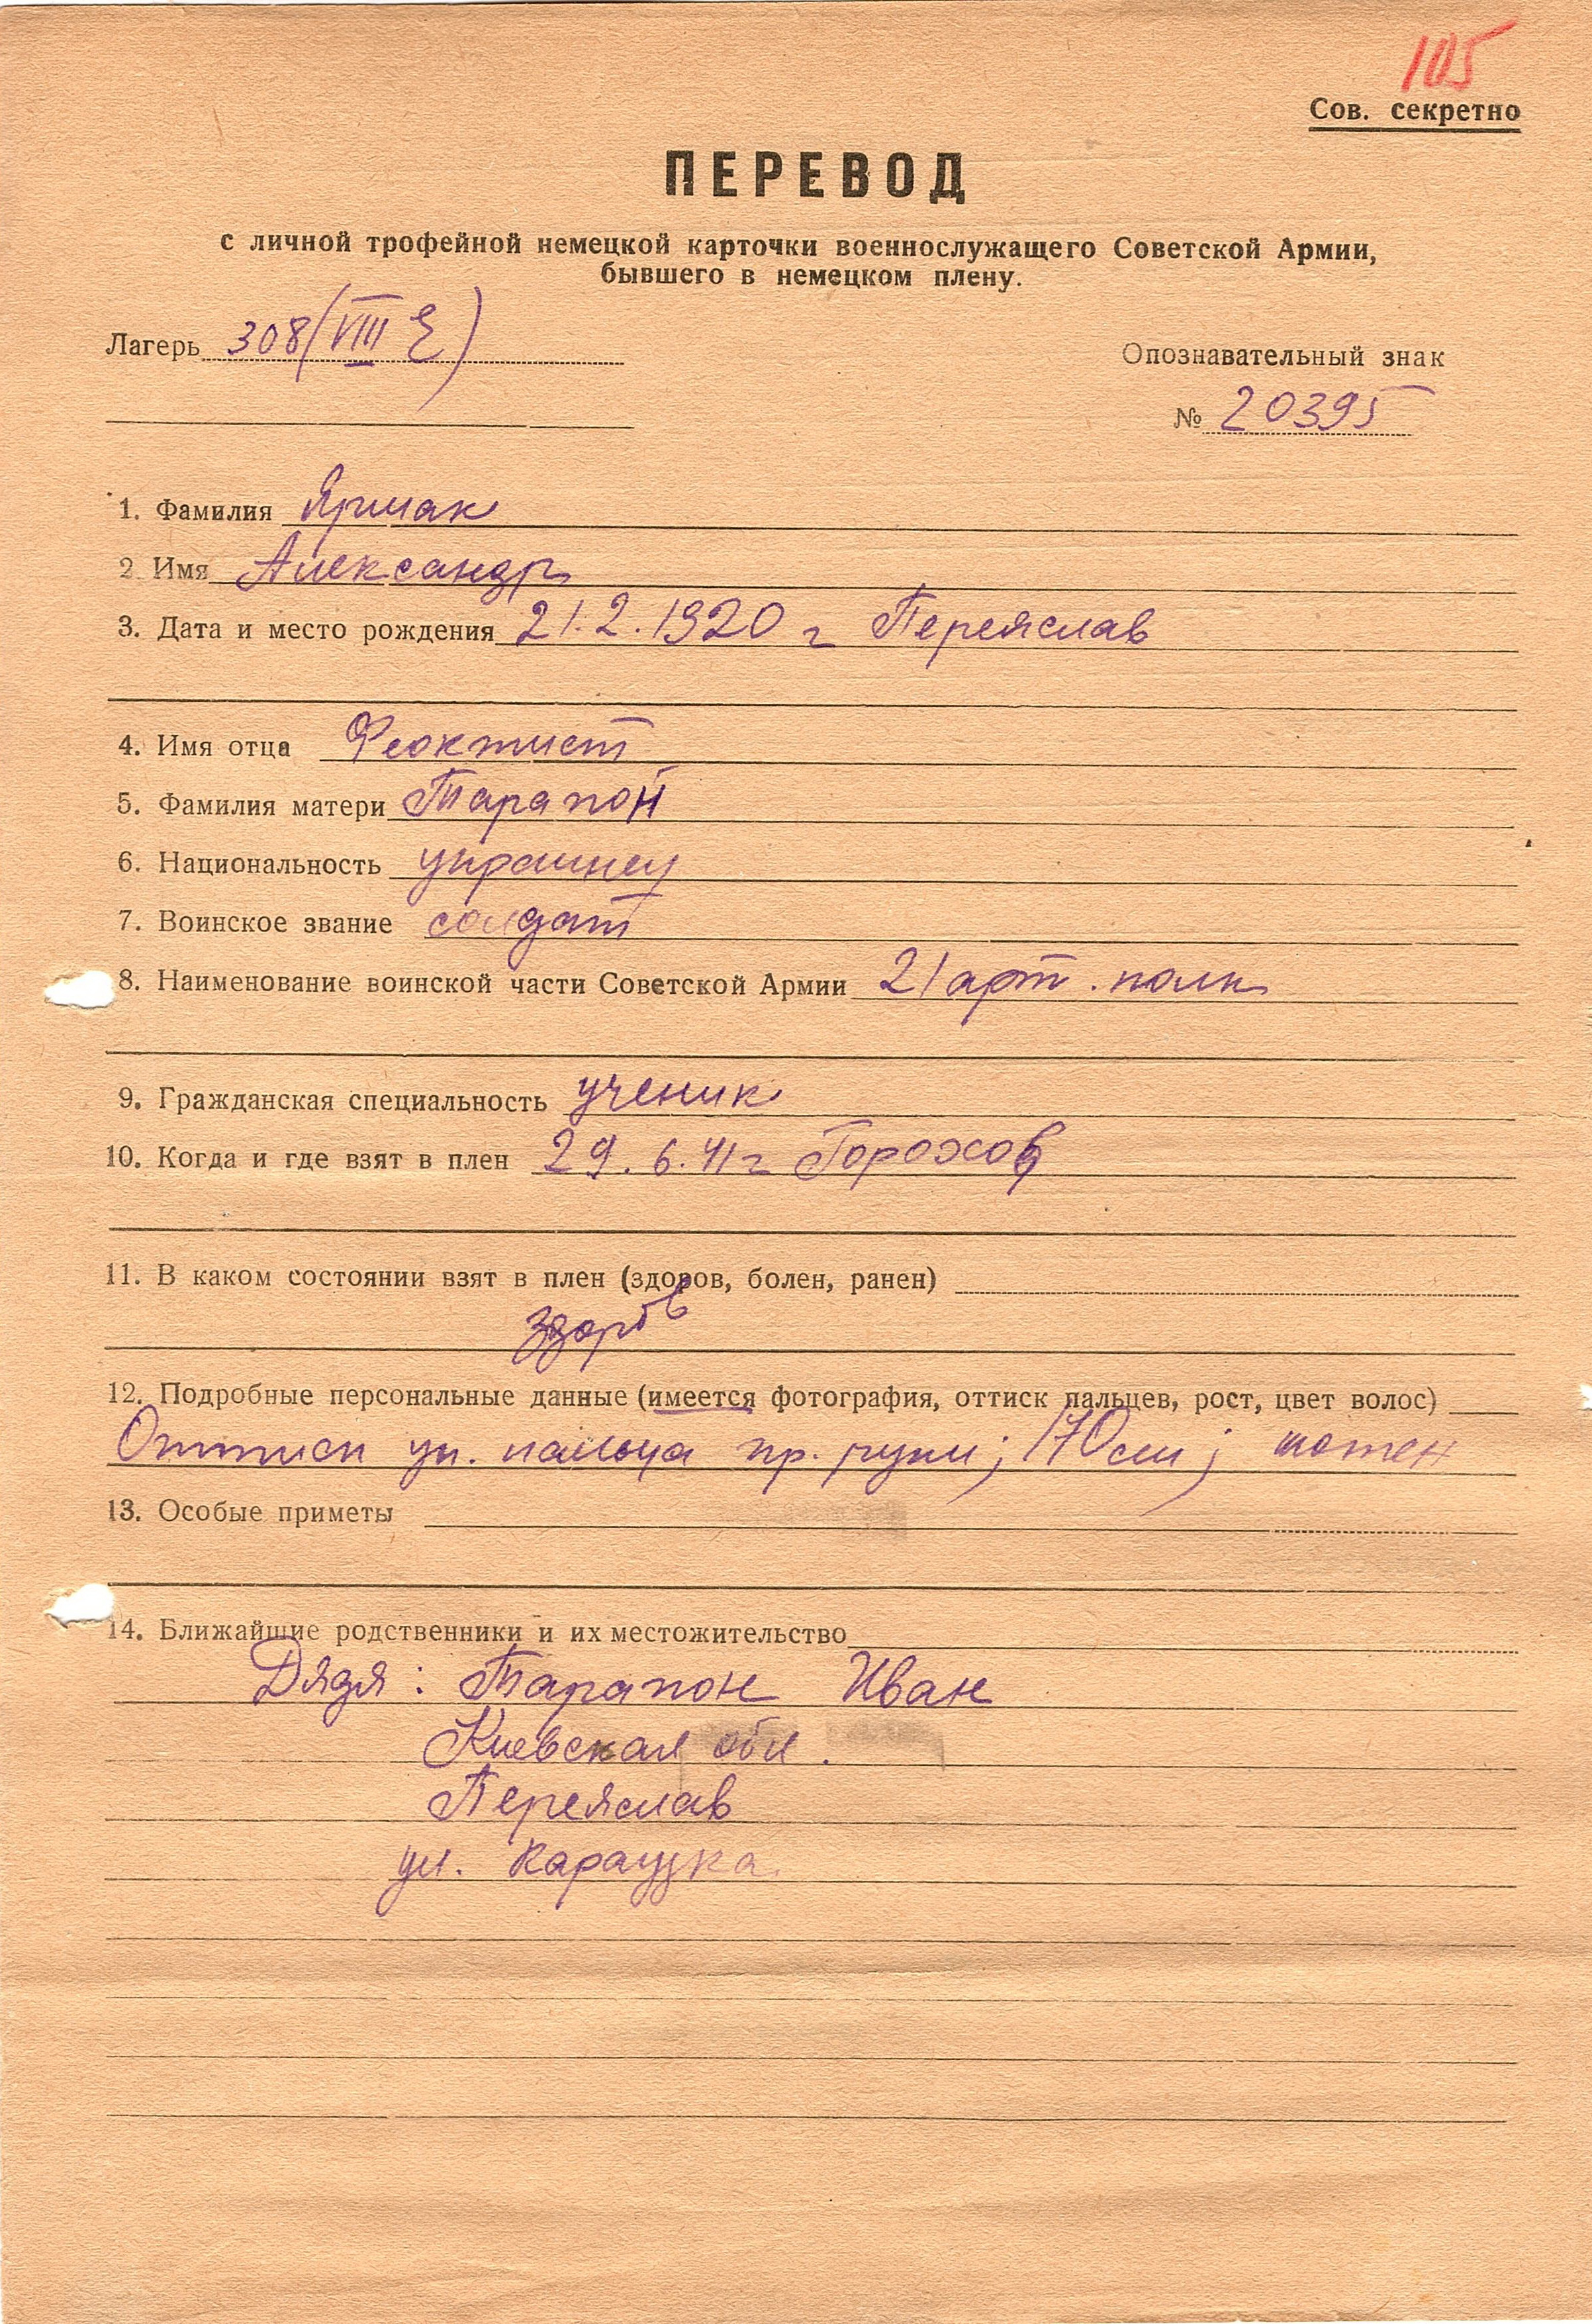 105
Сов. секретно
ПЕРЕВОД
с личной трофейной немецкой карточки военнослужащего Советской Армии,
бывшего в немецком плену.
Лагерь 308 (VIII E)
Опознавательный знак
№ 20395
1. Фамилия Ярмак
2 Имя Александр
3. Дата и место рождения 21.2.1920 г Переяслав
4. Имя отца Феоктист
5. Фамилия матери Тарапон
6. Национальность украинец
7. Воинское звание солдат
8. Наименование воинской части Советской Армии 21 арт. полк
9. Гражданская специальность ученик
10. Когда и где взят в плен 29.6.41 г
11. В каком состоянии взят в плен (здоров, болен, ранен)
здоров
12. Подробные персональные данные (имеется фотография, оттиск пальцев, рост, цвет волос)
Оттиск ук. пальца пр. руки; 170 см; шатен
13. Особые приметы
14. Ближайшие родственники и их местожительство
Дядя: Тарапон Иван
Киевская обл.
Переяслав
ул.